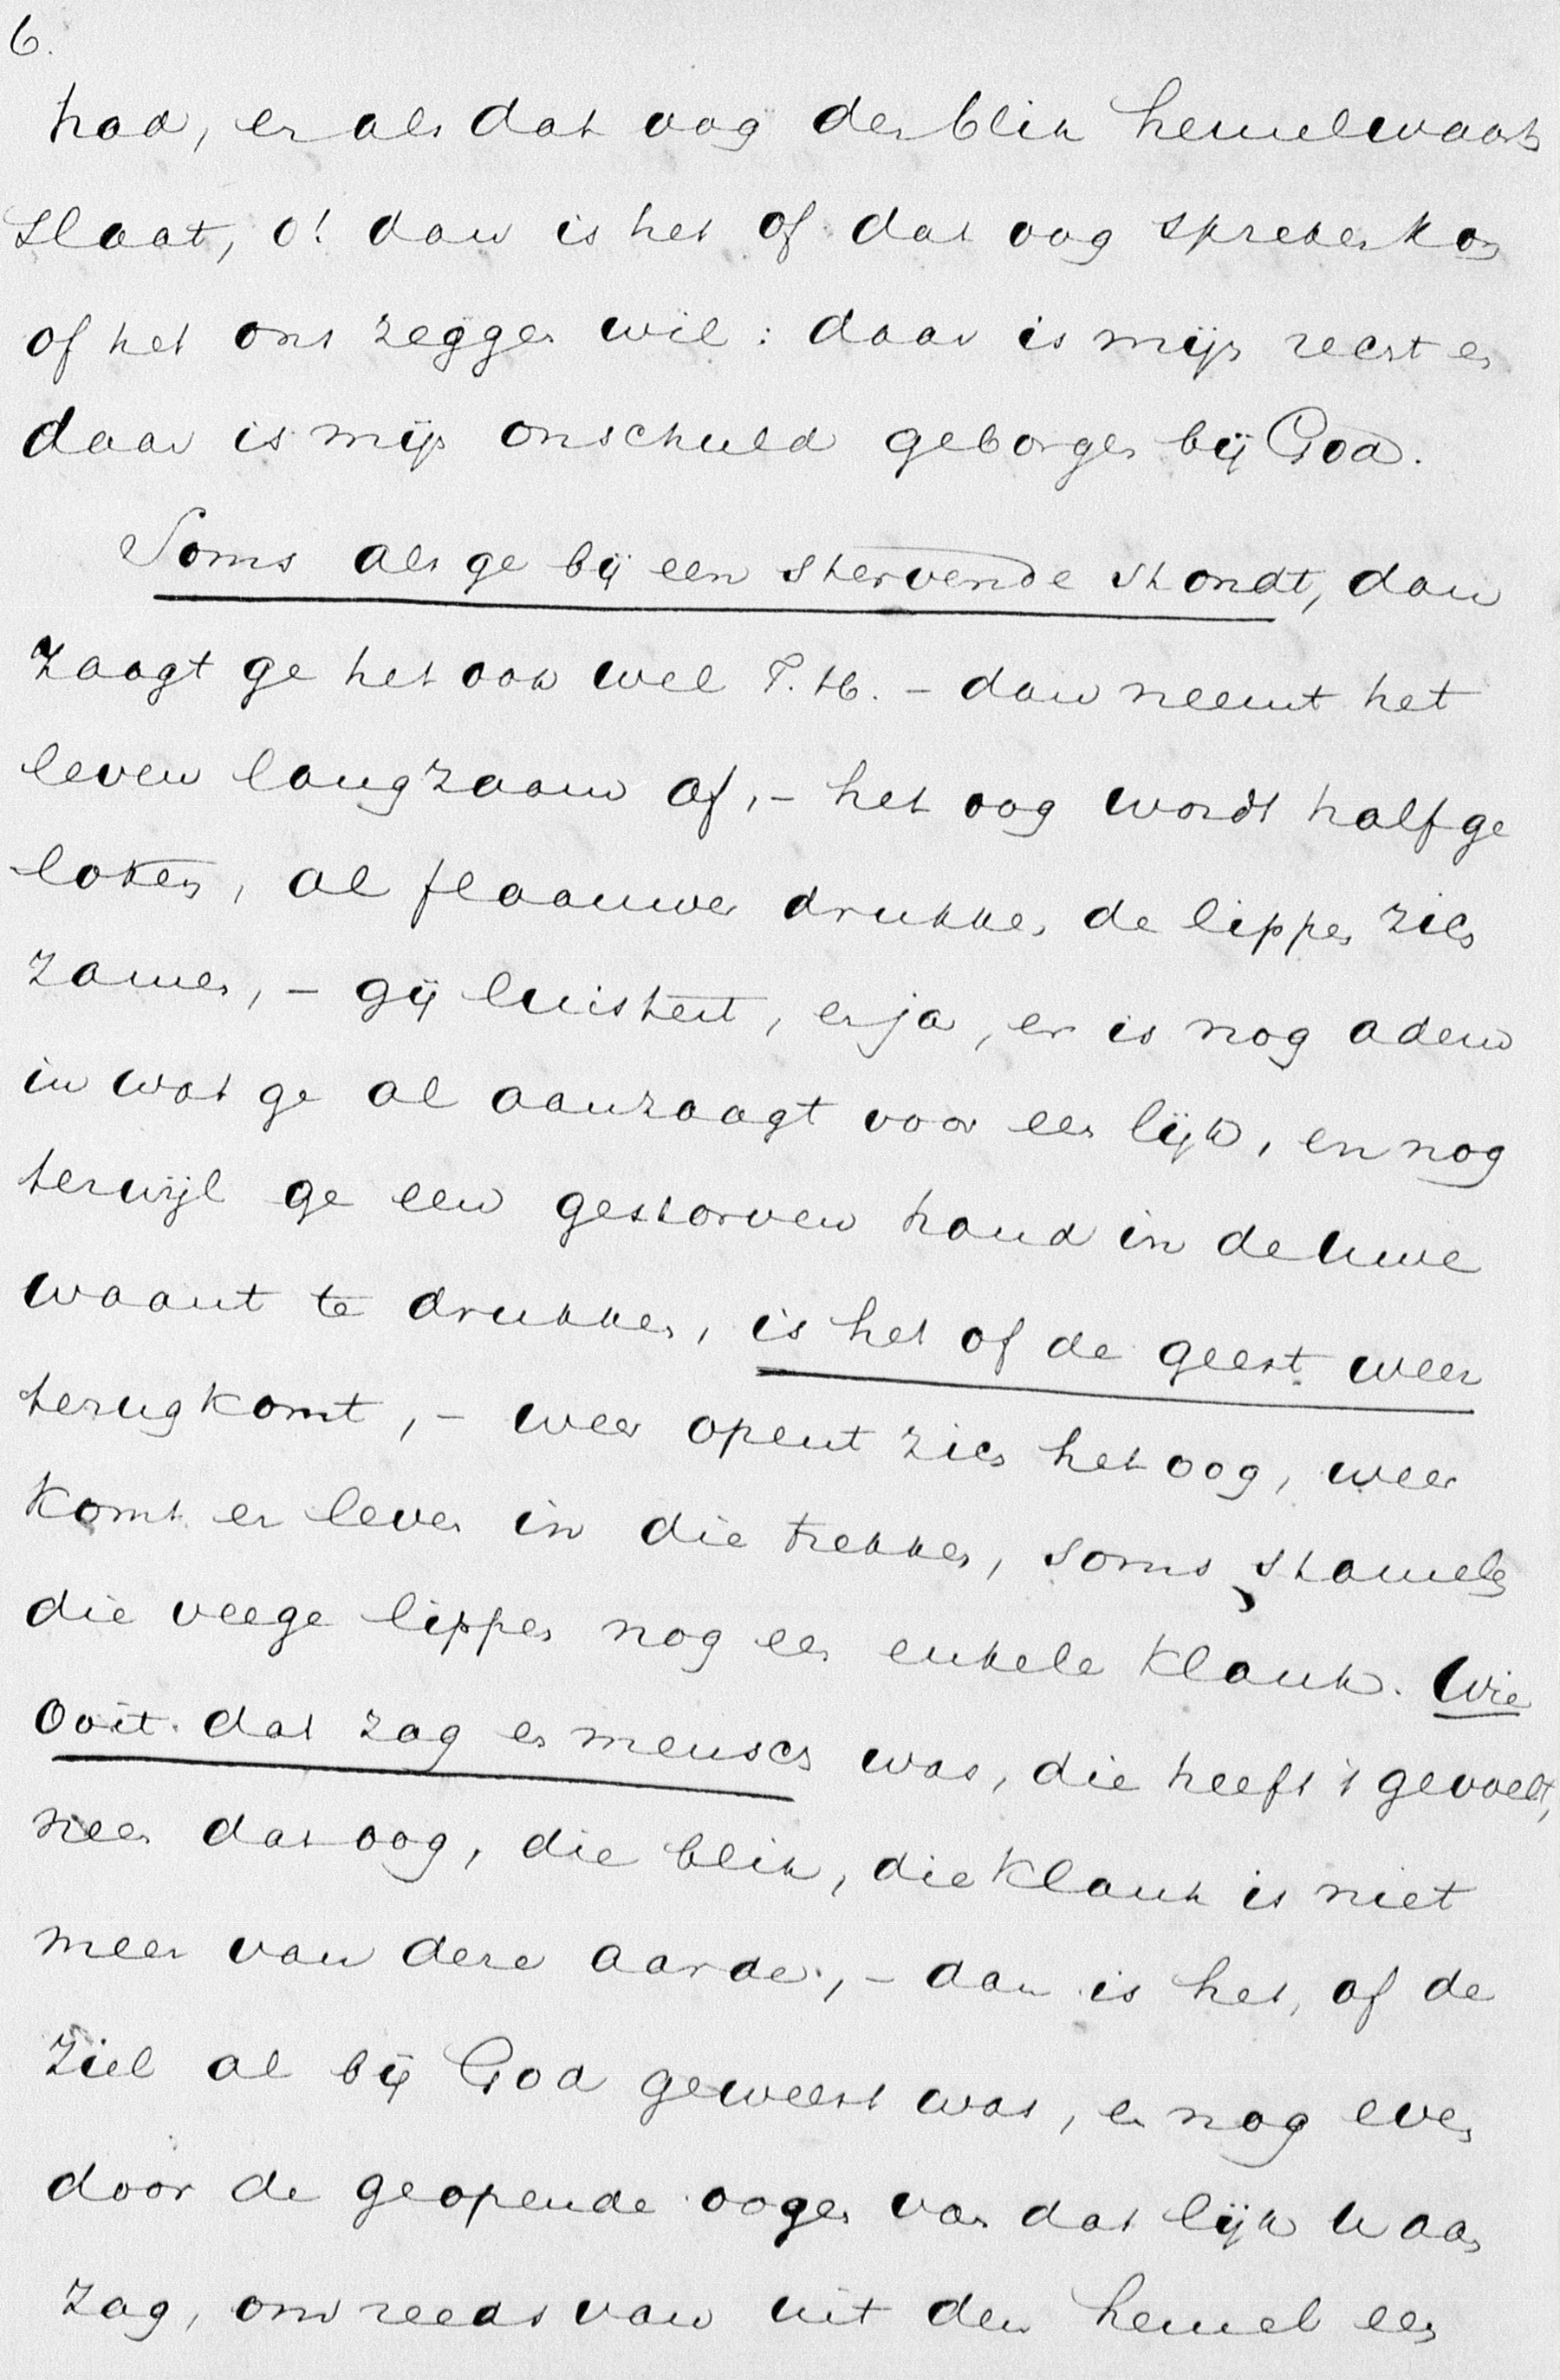 6.
had, en als dat oog den blik hemelwaarts
slaat, o! dan is het of dat oog spreken kon
of het ons zeggen wil: daar is mijn recht en
daar is mijn onschuld geborgen bij God.
Soms als ge bij een stervende stondt, dan
zaagt ge het ook wel T. H. - dan neemt het
leven langzaam af, - het oog wordt half ge
loken, al flaauwer drukken de lippen zich
zamen, - gij luistert, en ja, er is nog adem
in wat ge al aanzaagt voor een lijk, en nog
terwijl ge een gestorven hand in de uwe
waant te drukken, is het of de geest weer
terugkomt, - weer opent zich het oog, weer
komt er leven in die trekken, soms stamelen
die veege lippen nog een enkele klank. Wie
ooit dat zag en mensch was, die heeft 't gevoelt,
neen dat oog, die blik, die klank is niet
meer van deze aarde, - dan is het, of de
ziel al bij God geweest was, en nog even
door de geopende oogen van dat lijk waas
zag, om reeds van uit den hemel een